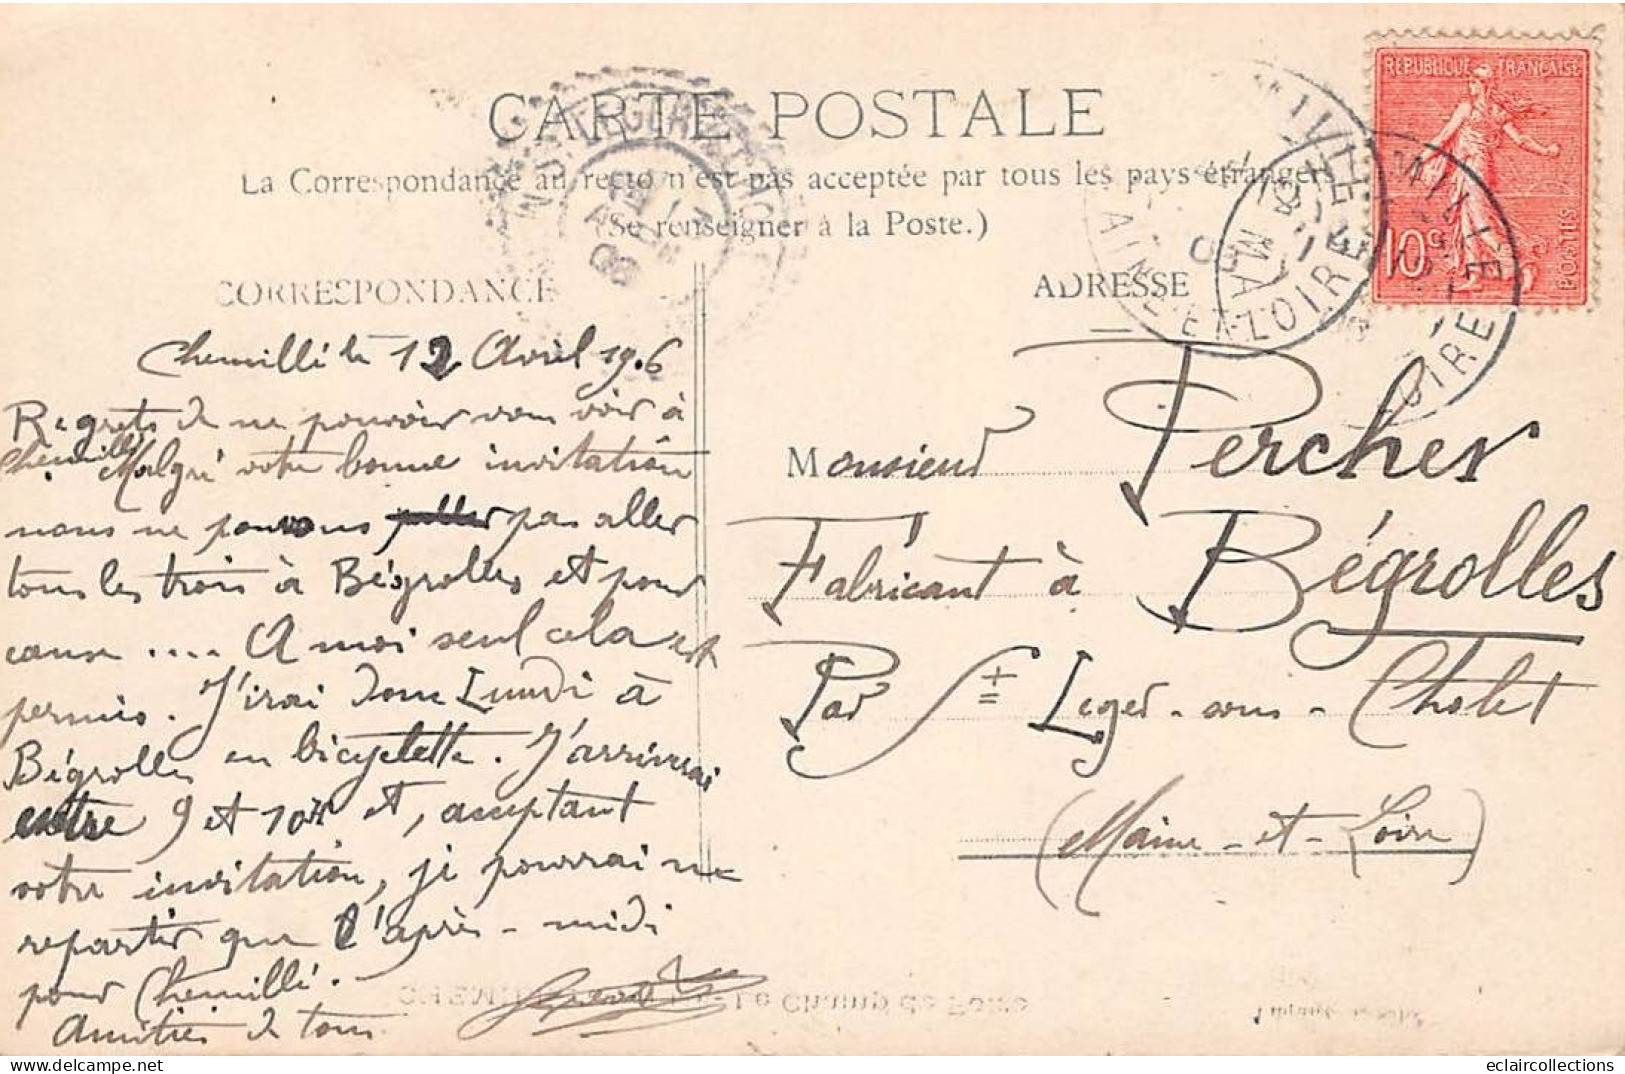 CARTE POSTALE
La Correspondance au recto n'est pas acceptée par tous les pays étrangers
(Se renseigner à la Poste.)
CORRESPONDANCE
ADRESSE
RÉPUBLIQUE FRANÇAISE
10c
POSTES
MAINE-ET-LOIRE
Chemillé le 12 Avril 1906
Regrets de ne pouvoir vous voir à
Chemillé. Malgré votre bonne invitation
nous ne pouvons pas aller
tous les trois à Bégrolles et pour
cause .... A moi seul cela est
permis. J'irai donc Lundi à
Bégrolles en bicyclette. J'arriverai
entre 9 et 10h et, acceptant
votre invitation, je pourrai ne
repartir que l'après-midi
pour Chemillé.
Amitiés de tous
Monsieur Percher
Fabricant à Bégrolles
Par St Leger-sous-Cholet
(Maine-et-Loire)
eclaircollections